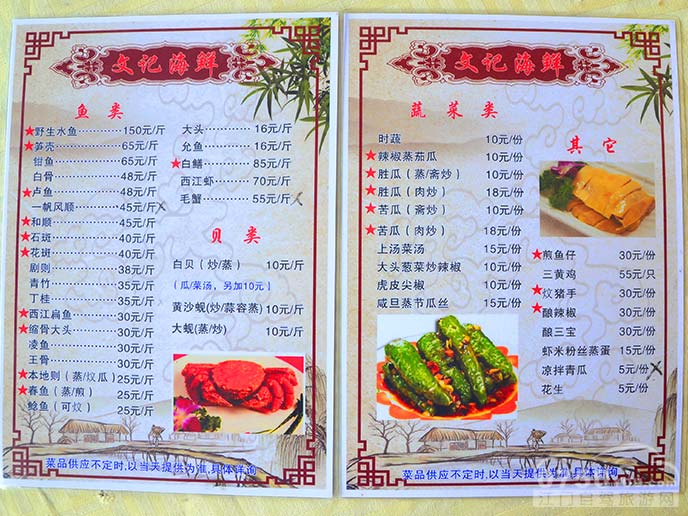 文记海鲜
鱼类
★野生水鱼………150元/斤
★笋壳…………65元/斤
钳鱼…………65元/斤
白骨…………48元/斤
★卢鱼…………48元/斤
一帆风顺………45元/斤
★和顺…………45元/斤
★石斑…………40元/斤
★花斑…………40元/斤
剧则…………38元/斤
青竹…………35元/斤
丁桂…………35元/斤
★西江扁鱼………30元/斤
★缩骨大头………30元/斤
凌鱼…………30元/斤
王骨…………30元/斤
★本地则(蒸/炆瓜)25元/斤
★春鱼(蒸/煎)25元/斤
鲶鱼(可炆)25元/斤
大头…………16元/斤
允鱼…………16元/斤
★白鳝…………85元/斤
西江虾………70元/斤
毛蟹…………55元/斤
贝类
白贝(炒/蒸) 10元/斤
(瓜/菜汤,另加10元)
黄沙蚬(炒/蒜容蒸)10元/斤
大蚬(蒸/炒) 10元/斤
菜品供应不定时,以当天提供为准,具体详询
文记海鲜
蔬菜类
时蔬 10元/份
★辣椒蒸茄瓜 10元/份
★胜瓜(蒸/斋炒) 10元/份
★胜瓜(肉炒) 18元/份
★苦瓜(斋炒) 10元/份
★苦瓜(肉炒) 18元/份
上汤菜汤 15元/份
大头葱菜炒辣椒 10元/份
虎皮尖椒 10元/份
咸旦蒸节瓜丝 15元/份
其它
★煎鱼仔 30元/份
三黄鸡 55元/只
★炆猪手 30元/份
★酿辣椒 30元/份
酿三宝 30元/份
虾米粉丝蒸蛋 15元/份
凉拌青瓜 5元/份
花生 5元/份
菜品供应不定时,以当天提供为准,具体详询